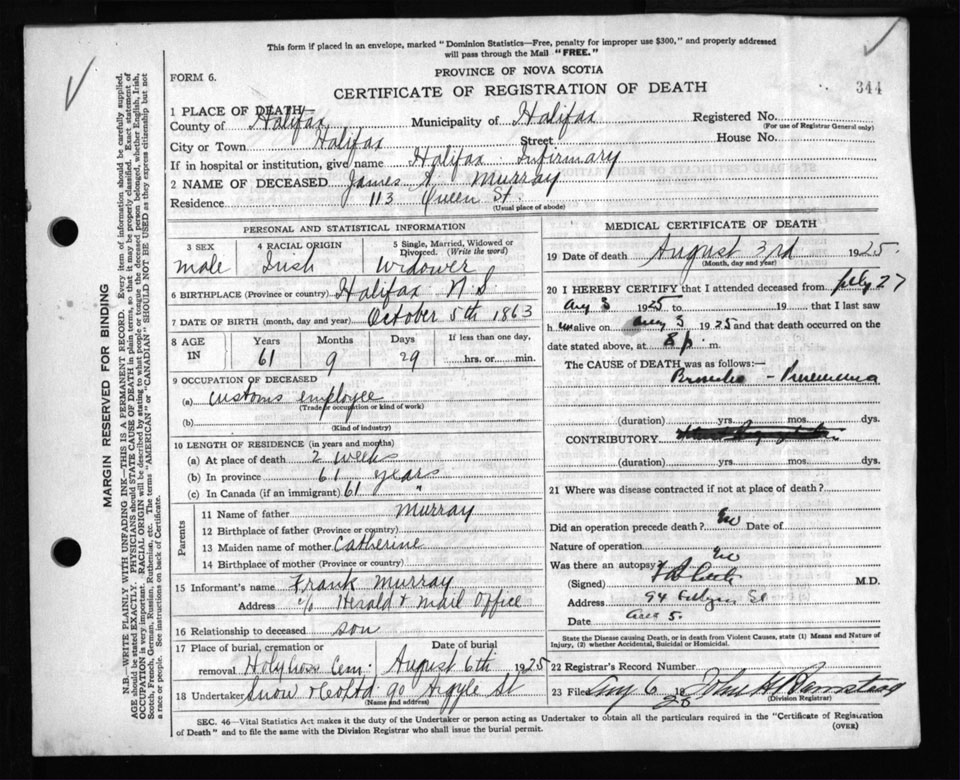 This form if placed in an envelope, marked "Dominion Statistics—Free, penalty for improper use $300," and properly addressed
will pass through the Mail "FREE."
FORM 6.
PROVINCE OF NOVA SCOTIA
CERTIFICATE OF REGISTRATION OF DEATH
344
1 PLACE OF DEATH—
County of Halifax Municipality of Halifax Registered No.
(For use of Registrar General only)
City or Town Halifax Street House No.
If in hospital or institution, give name Halifax Infirmary
2 NAME OF DECEASED James A. Murray
Residence 113 Queen St.
(Usual place of abode)
PERSONAL AND STATISTICAL INFORMATION
3 SEX 4 RACIAL ORIGIN 5 Single, Married, Widowed or
Divorced. (Write the word)
male Irish Widower
6 BIRTHPLACE (Province or country) Halifax N.S.
7 DATE OF BIRTH (month, day and year) October 5th 1863
8 AGE Years Months Days If less than one day,
IN 61 9 29 hrs. or min.
9 OCCUPATION OF DECEASED
(a) Customs employee
(Trade or occupation or kind of work)
(b)
(Kind of industry)
10 LENGTH OF RESIDENCE (in years and months)
(a) At place of death 2 weeks
(b) In province 61 years
(c) In Canada (if an immigrant) 61 "
Parents
11 Name of father Murray
12 Birthplace of father (Province or country)
13 Maiden name of mother Catherine
14 Birthplace of mother (Province or country)
15 Informant's name Frank Murray
Address c/o Herald & Mail Office
16 Relationship to deceased son
17 Place of burial, cremation or Date of burial
removal Holy Cross Cem. August 6th 1925
18 Undertaker Snow & Co Ltd 90 Argyle St
(Name and address)
MEDICAL CERTIFICATE OF DEATH
19 Date of death August 3rd 1925.
(Month, day and year)
20 I HEREBY CERTIFY that I attended deceased from July 27
Aug 3 1925 to 19 that I last saw
h im alive on Aug 3 1925 and that death occurred on the
date stated above, at 8 p. m.
The CAUSE OF DEATH was as follows:—
Broncho - Pneumonia
(duration) yrs. mos. dys.
CONTRIBUTORY
(duration) yrs. mos. dys.
21 Where was disease contracted if not at place of death?
Did an operation precede death? No Date of
Nature of operation
Was there an autopsy? No
(Signed) M.D.
Address 94 St
Date 5.
State the Disease causing Death, or in death from Violent Causes, state (1) Means and Nature of
Injury, (2) whether Accidental, Suicidal or Homicidal.
22 Registrar's Record Number
23 Filed Aug 6 1925 John H
(Division Registrar)
SEC. 46—Vital Statistics Act makes it the duty of the Undertaker or person acting as Undertaker to obtain all the particulars required in the "Certificate of Registration
of Death" and to file the same with the Division Registrar who shall issue the burial permit. (OVER)
MARGIN RESERVED FOR BINDING
N.B.—WRITE PLAINLY WITH UNFADING INK—THIS IS A PERMANENT RECORD. Every item of information should be carefully supplied.
AGE should be stated EXACTLY. PHYSICIANS should STATE CAUSE OF DEATH in plain terms, so that it may be properly classified. Exact statement of
OCCUPATION is very important. RACIAL ORIGIN will be described by stating to what people or tongue the deceased person belonged, whether English, Irish,
Scotch, French, German, Russian, Ruthenian, etc. The terms "AMERICAN" or "CANADIAN" SHOULD NOT BE USED as they express citizenship but not
a race or people. See instructions on back of Certificate.